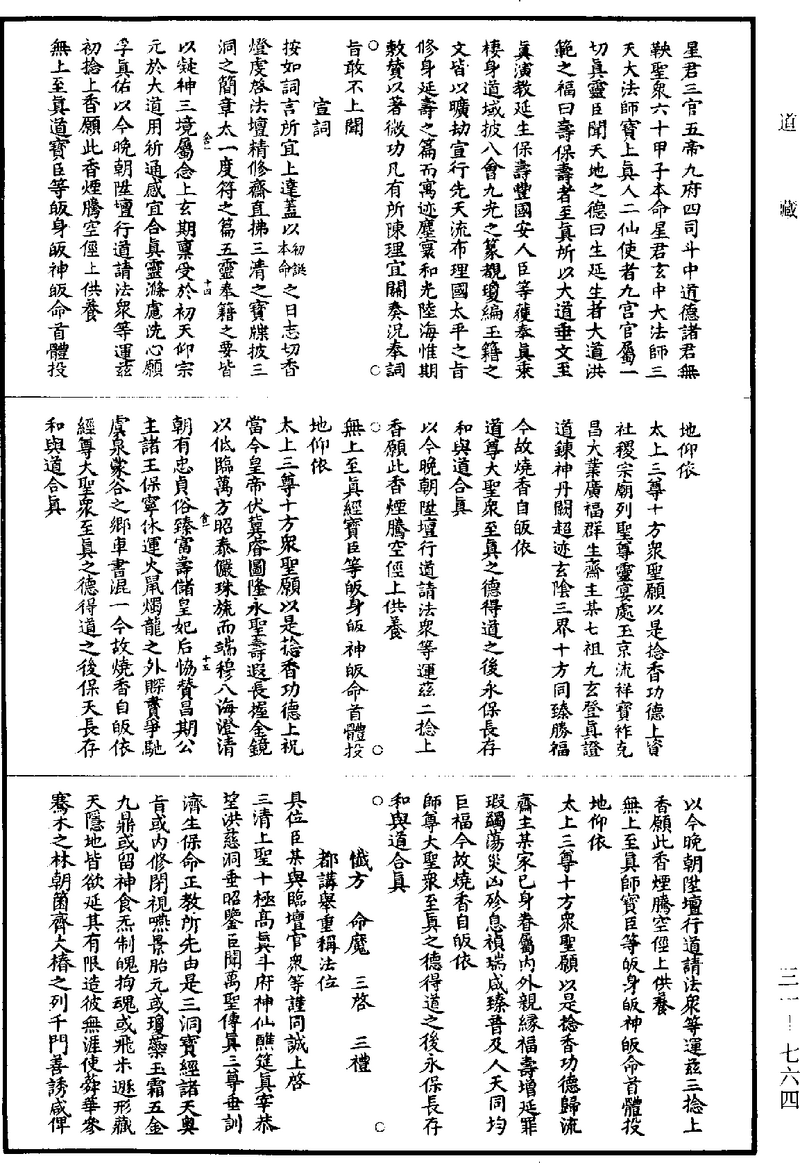 道藏
星君三官五帝九府四司斗中道德諸君無
鞅聖衆六十甲子本命星君玄中大法師三
天大法師寶上真人二仙使者九宮官屬一
切真靈臣聞天地之德曰生延生者大道洪
範之福曰壽保壽者至真所以大道垂文至
真演教延生保壽豐國安人臣等獲奉真乘
棲身道域披八會九光之篆覩瓊編玉籍之
文皆以曠劫宣行先天流布理國太平之旨
修身延壽之篇而寓迹塵寰和光陸海惟期
敷贊以著微功凡有所陳理宜關奏況奉詞
旨敢不上聞
宣詞
按如詞言所宜上達蓋以初誕本命之日志切香
燈虔啓法壇精修齋直拂三清之寶牒披三
洞之簡章太一度符之篇五靈奉籍之要皆
以凝神三境屬念上玄期稟受於初天仰宗
元於大道用祈通感宜合真靈滌慮洗心願
孚真佑以今晚朝陞壇行道請法衆等運茲
初捻上香願此香煙騰空徑上供養
無上至真道寶臣等皈身皈神皈命首體投
地仰依
太上三尊十方衆聖願以是捻香功德上資
社稷宗廟列聖尊靈宴處玉京流祥寶祚克
昌大業廣福群生齋主某七祖九玄登真證
道鍊神丹闕超迹玄陰三界十方同臻勝福
今故燒香自皈依
道尊大聖衆至真之德得道之後永保長存
和與道合真
以今晚朝陞壇行道請法衆等運茲二捻上
香願此香煙騰空徑上供養
無上至真經寶臣等皈身皈神皈命首體投
地仰依
太上三尊十方衆聖願以是捻香功德上祝
當今皇帝伏冀睿圖隆永聖壽遐長握金鏡
以低臨萬方昭泰儼珠旒而端穆八海澄清
朝有忠貞俗臻富壽儲皇妃后協贊昌期公
主諸王保寧休運火鼠燭龍之外賝賮爭馳
虞泉蒙谷之鄉車書混一今故燒香自皈依
經尊大聖衆至真之德得道之後保天長存
和與道合真
以今晚朝陞壇行道請法衆等運茲三捻上
香願此香煙騰空徑上供養
無上至真師寶臣等皈身皈神皈命首體投
地仰依
太上三尊十方衆聖願以是捻香功德歸流
齋主某家已身眷屬內外親緣福壽增延罪
瑕蠲蕩災凶殄息禎瑞咸臻普及人天同均
巨福今故燒香自皈依
師尊大聖衆至真之德得道之後永保長存
和與道合真
懺方　命魔　三啓　三禮
都講舉重稱法位
具位臣某與臨壇官衆等謹同誠上啓
三清上聖十極高真斗府神仙醮筵真宰恭
望洪慈洞垂昭鑒臣聞萬聖傳真三尊垂訓
濟生保命正教所先由是三洞寶經諸天奧
旨或內修閉視嚥景胎元或瓊蘂玉霜五金
九鼎或留神食炁制魄拘魂或飛术遯形藏
天隱地皆欲延其有限造彼無涯使舜華參
騫木之林朝菌齊大椿之列千門善誘咸俾
三一－七六四